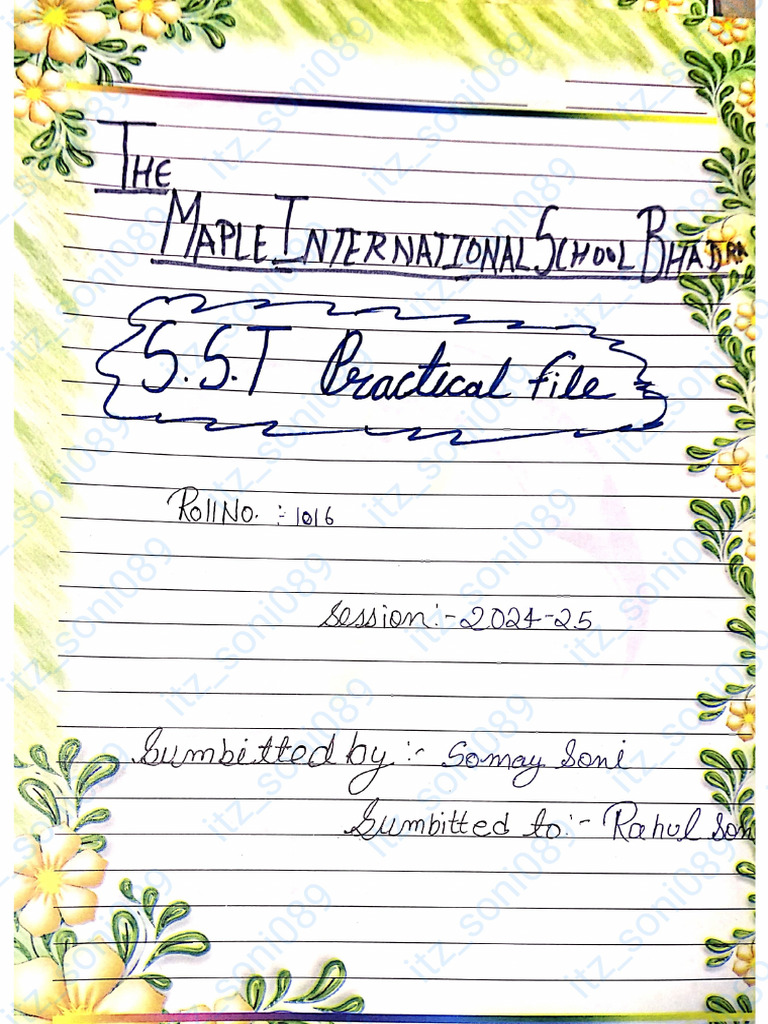 THE
MAPLE INTERNATIONAL SCHOOL BHADRA
S.S.T Practical file
Roll No. :- 1016
Session:- 2024-25
Sumbitted by :- Somay Soni
Sumbitted to:- Rahul Son
itz_soni089